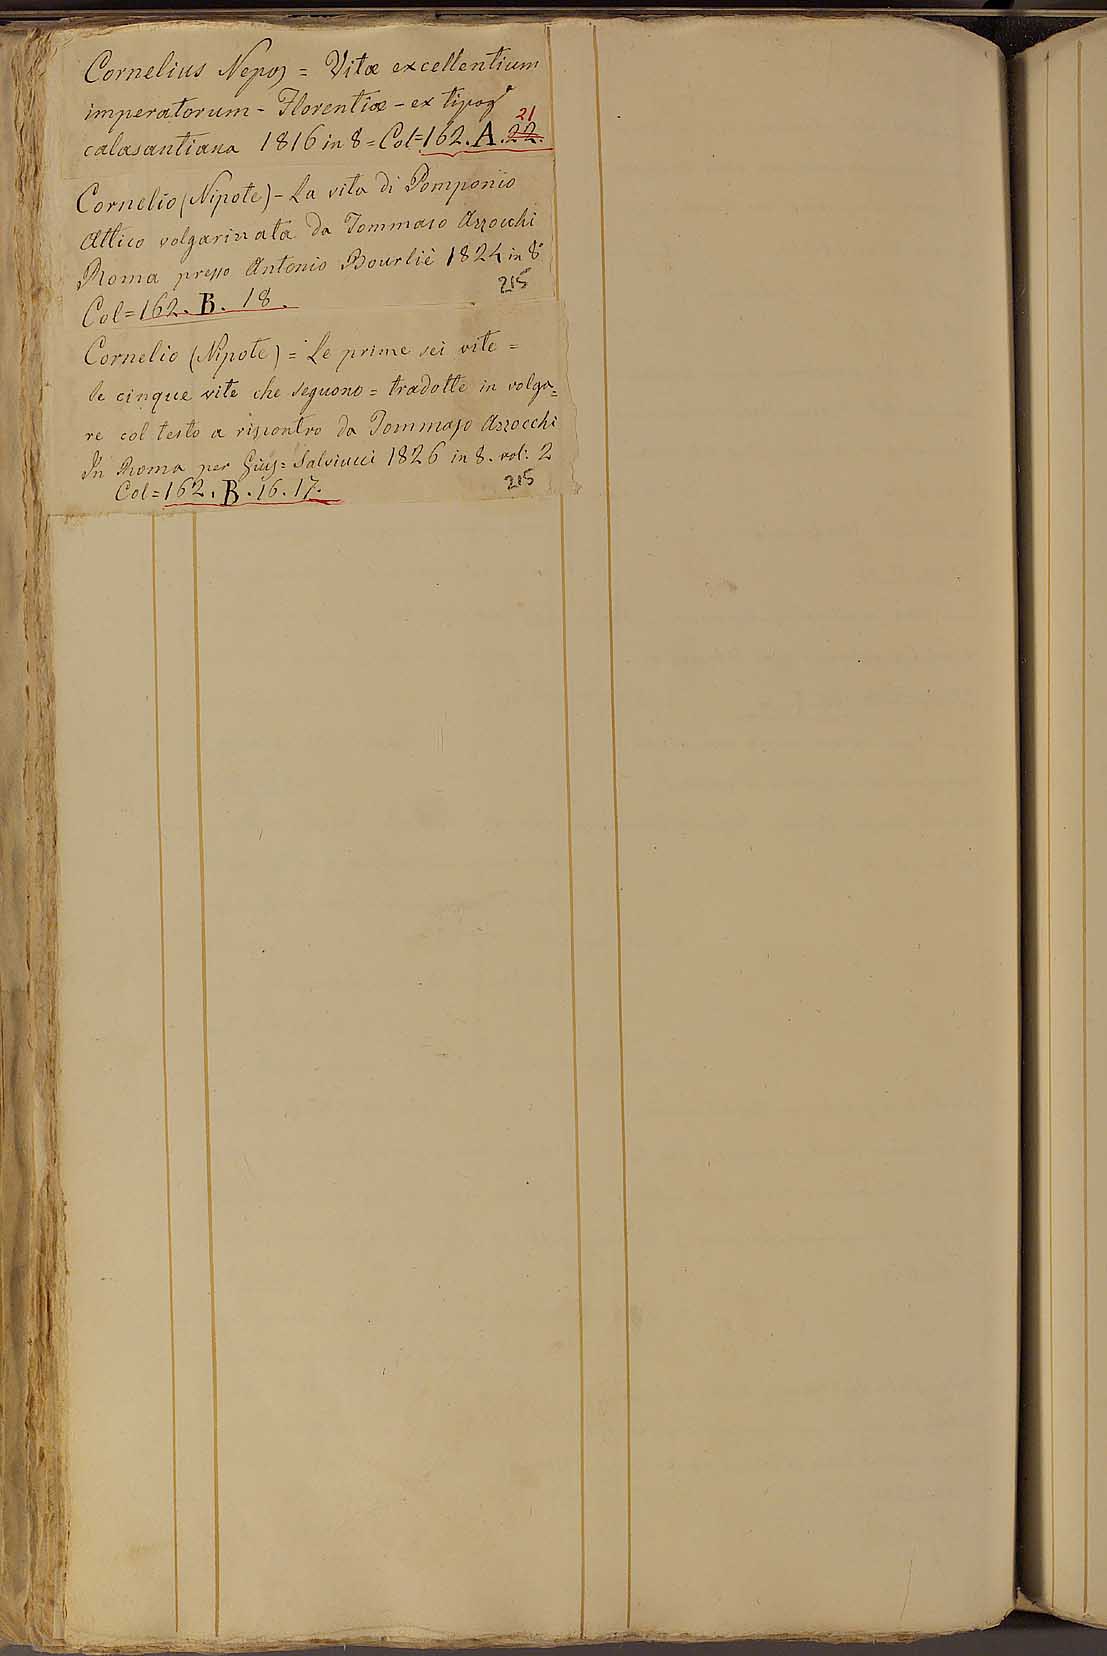 Cornelius Nepos = Vitæ excellentium
imperatorum - Florentiæ - ex tipogª
calasantiana 1816 in 8 = Col = 162. A. 22.
21
Cornelio (Nipote) - La vita di Pomponio
Attico volgarizzata da Tommaso Azzocchi
Roma presso Antonio Bourliè 1824 in 8º
215
Col = 162. B. 18.
Cornelio (Nipote) = Le prime sei vite =
le cinque vite che seguono = tradotte in volga=
re col testo a riscontro da Tommaso Azzocchi
In Roma per Gius= Salviucci 1826 in 8. vol: 2
Col = 162. B. 16. 17.
215